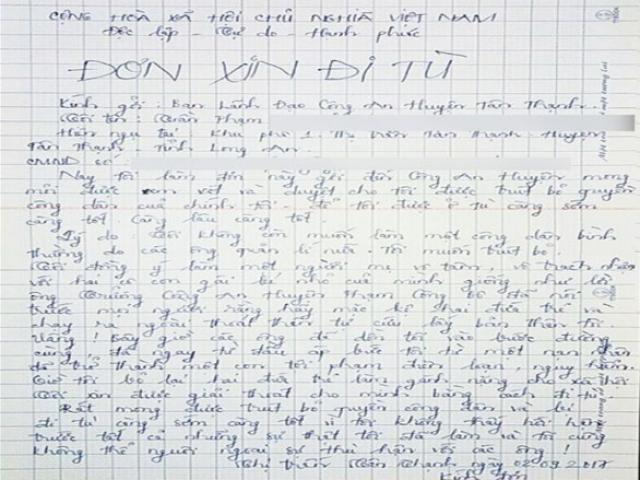 CỘNG HÒA XÃ HỘI CHỦ NGHĨA VIỆT NAM
Độc lập - Tự do - Hạnh phúc
ĐƠN XIN ĐI TÙ
Kính gởi: Ban Lãnh Đạo Công An Huyện Tân Thạnh.
Tôi tên: Trần Phạm
Hiện ngụ tại khu phố 1. Thị trấn Tân Thạnh - Huyện
Tân Thạnh - Tỉnh Long An.
CMND số:
Nay tôi làm đơn này gởi đến Công An Huyện mong
mỏi được xem xét và duyệt cho tôi được tước bỏ quyền
công dân của chính tôi - để tôi được ở tù càng sớm
càng tốt. Càng lâu càng tốt.
Lý do: Tôi không còn muốn làm một công dân bình
thường do các ông quản lí nữa. Tôi muốn tước bỏ
Tôi đồng ý làm một người mẹ vô tâm, vô trách nhiệm
với hai cô con gái bé nhỏ của mình giống như lời
ông Trưởng Công An Huyện Phạm Công đã nói
trước mọi người rằng hãy mặc kệ hai đứa trẻ và
chạy ra ngoài thoát thân tự cứu lấy bản thân tôi.
Vâng! Bây giờ các ông đã dồn tôi vào bước đường
cùng đã ngay từ đầu áp bức tôi từ một nạn nhân
đã trở thành một con tội phạm điên loạn, nguy hiểm.
Giờ tôi bỏ lại hai đứa trẻ làm gánh nặng cho xã hội
Tôi xin được giải thoát cho mình bằng cách đi tù.
Rất mong được tước bỏ quyền công dân và
đi tù càng sớm càng tốt vì tôi không thấy hối hận
trước tất cả những sự thật tôi đã làm và tôi cũng
không thể nguôi ngoai sự thù hận với các ông!
Thị trấn Tân Thạnh, ngày 02.09.2017
Kính đơn